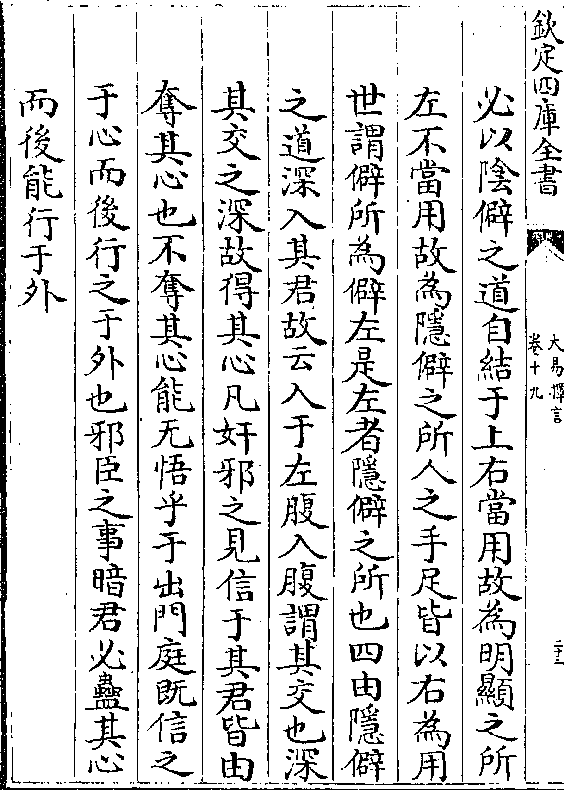 欽定四庫全書
大易擇言
卷十九
二十三
必以陰僻之道自結于上右當用故為明顯之所
左不當用故為隱僻之所人之手足皆以右為用
世謂僻所為僻左是左者隱僻之所也四由隱僻
之道深入其君故云入于左腹入腹謂其交也深
其交之深故得其心凡奸邪之見信于其君皆由
奪其心也不奪其心能无悟乎于出門庭既信之
于心而後行之于外也邪臣之事暗君必蠱其心
而後能行于外